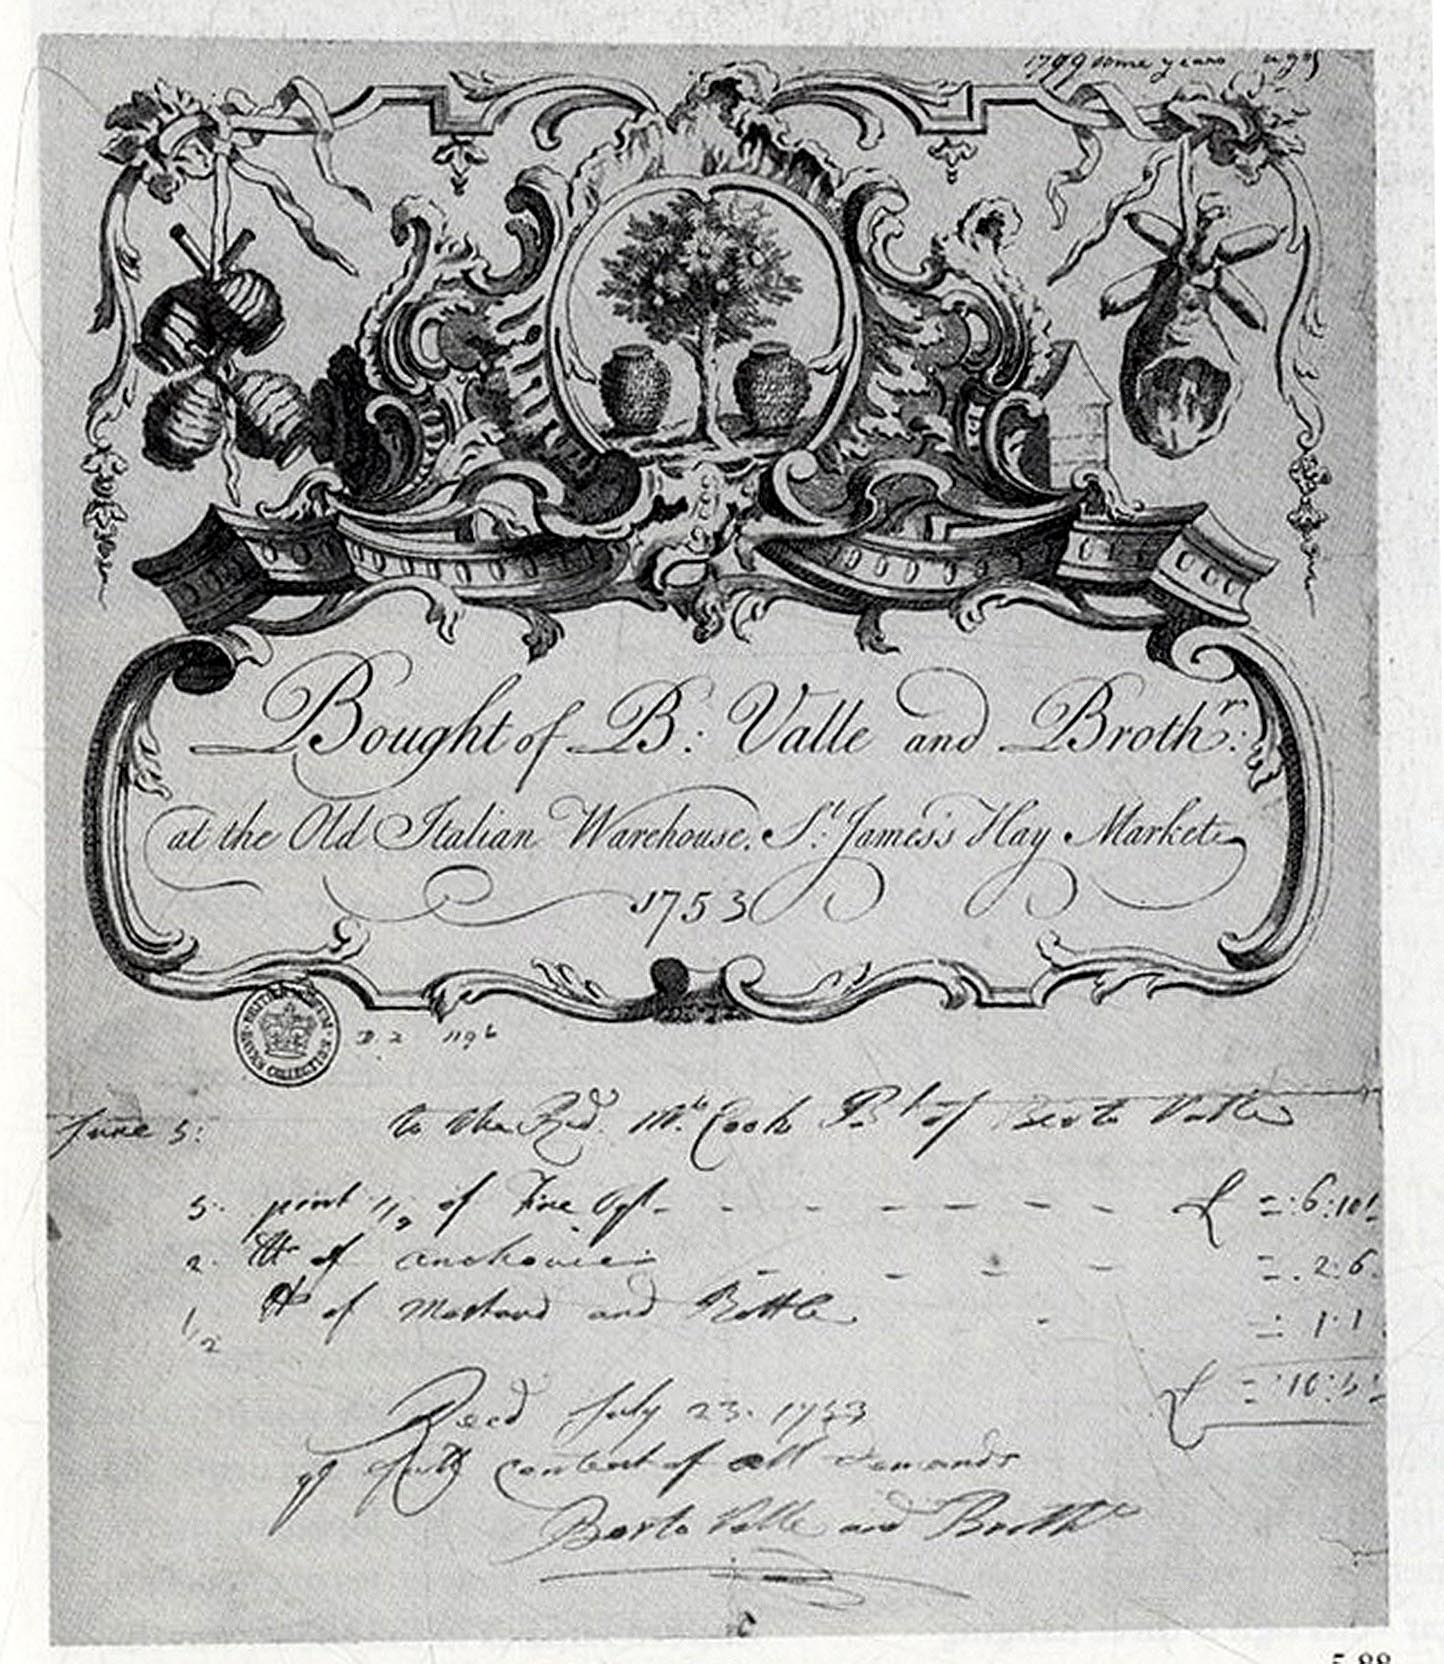 1799 some years ago
Bought of B: Valle and Brothr:
at the Old Italian Warehouse, St: James's Hay Market
1753
BRITISH MUSEUM
BANKS COLLECTION
D.2 1196
June 5: to the Red. Mr. Cook Bt of Barto Valle
5. pint 1/2 of Fine Oyl £ =:6:10
2. lb of anchovies =.2:6
1/2 lb of Mostard and Bottle =:1:1
£ =:10:5
Recd July 23. 1753
full content of all demands
Barto Valle and Brothr
5.88